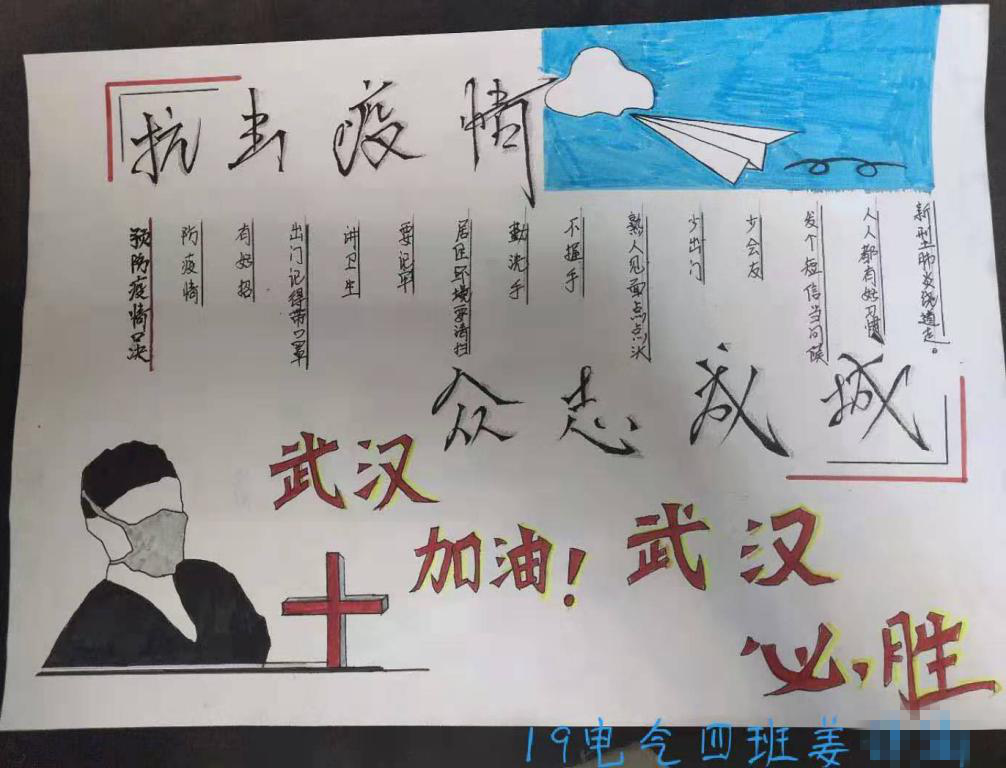 抗击疫情
预防疫情口诀
防疫情
有妙招
出门记得带口罩
讲卫生
要记牢
居住环境要清扫
勤洗手
不握手
熟人见面点点头
少出门
少会友
发个短信当问候
人人都有好习惯
新型肺炎绕道走。
众志成城
武汉
加油！
武汉
必胜
19电气四班姜